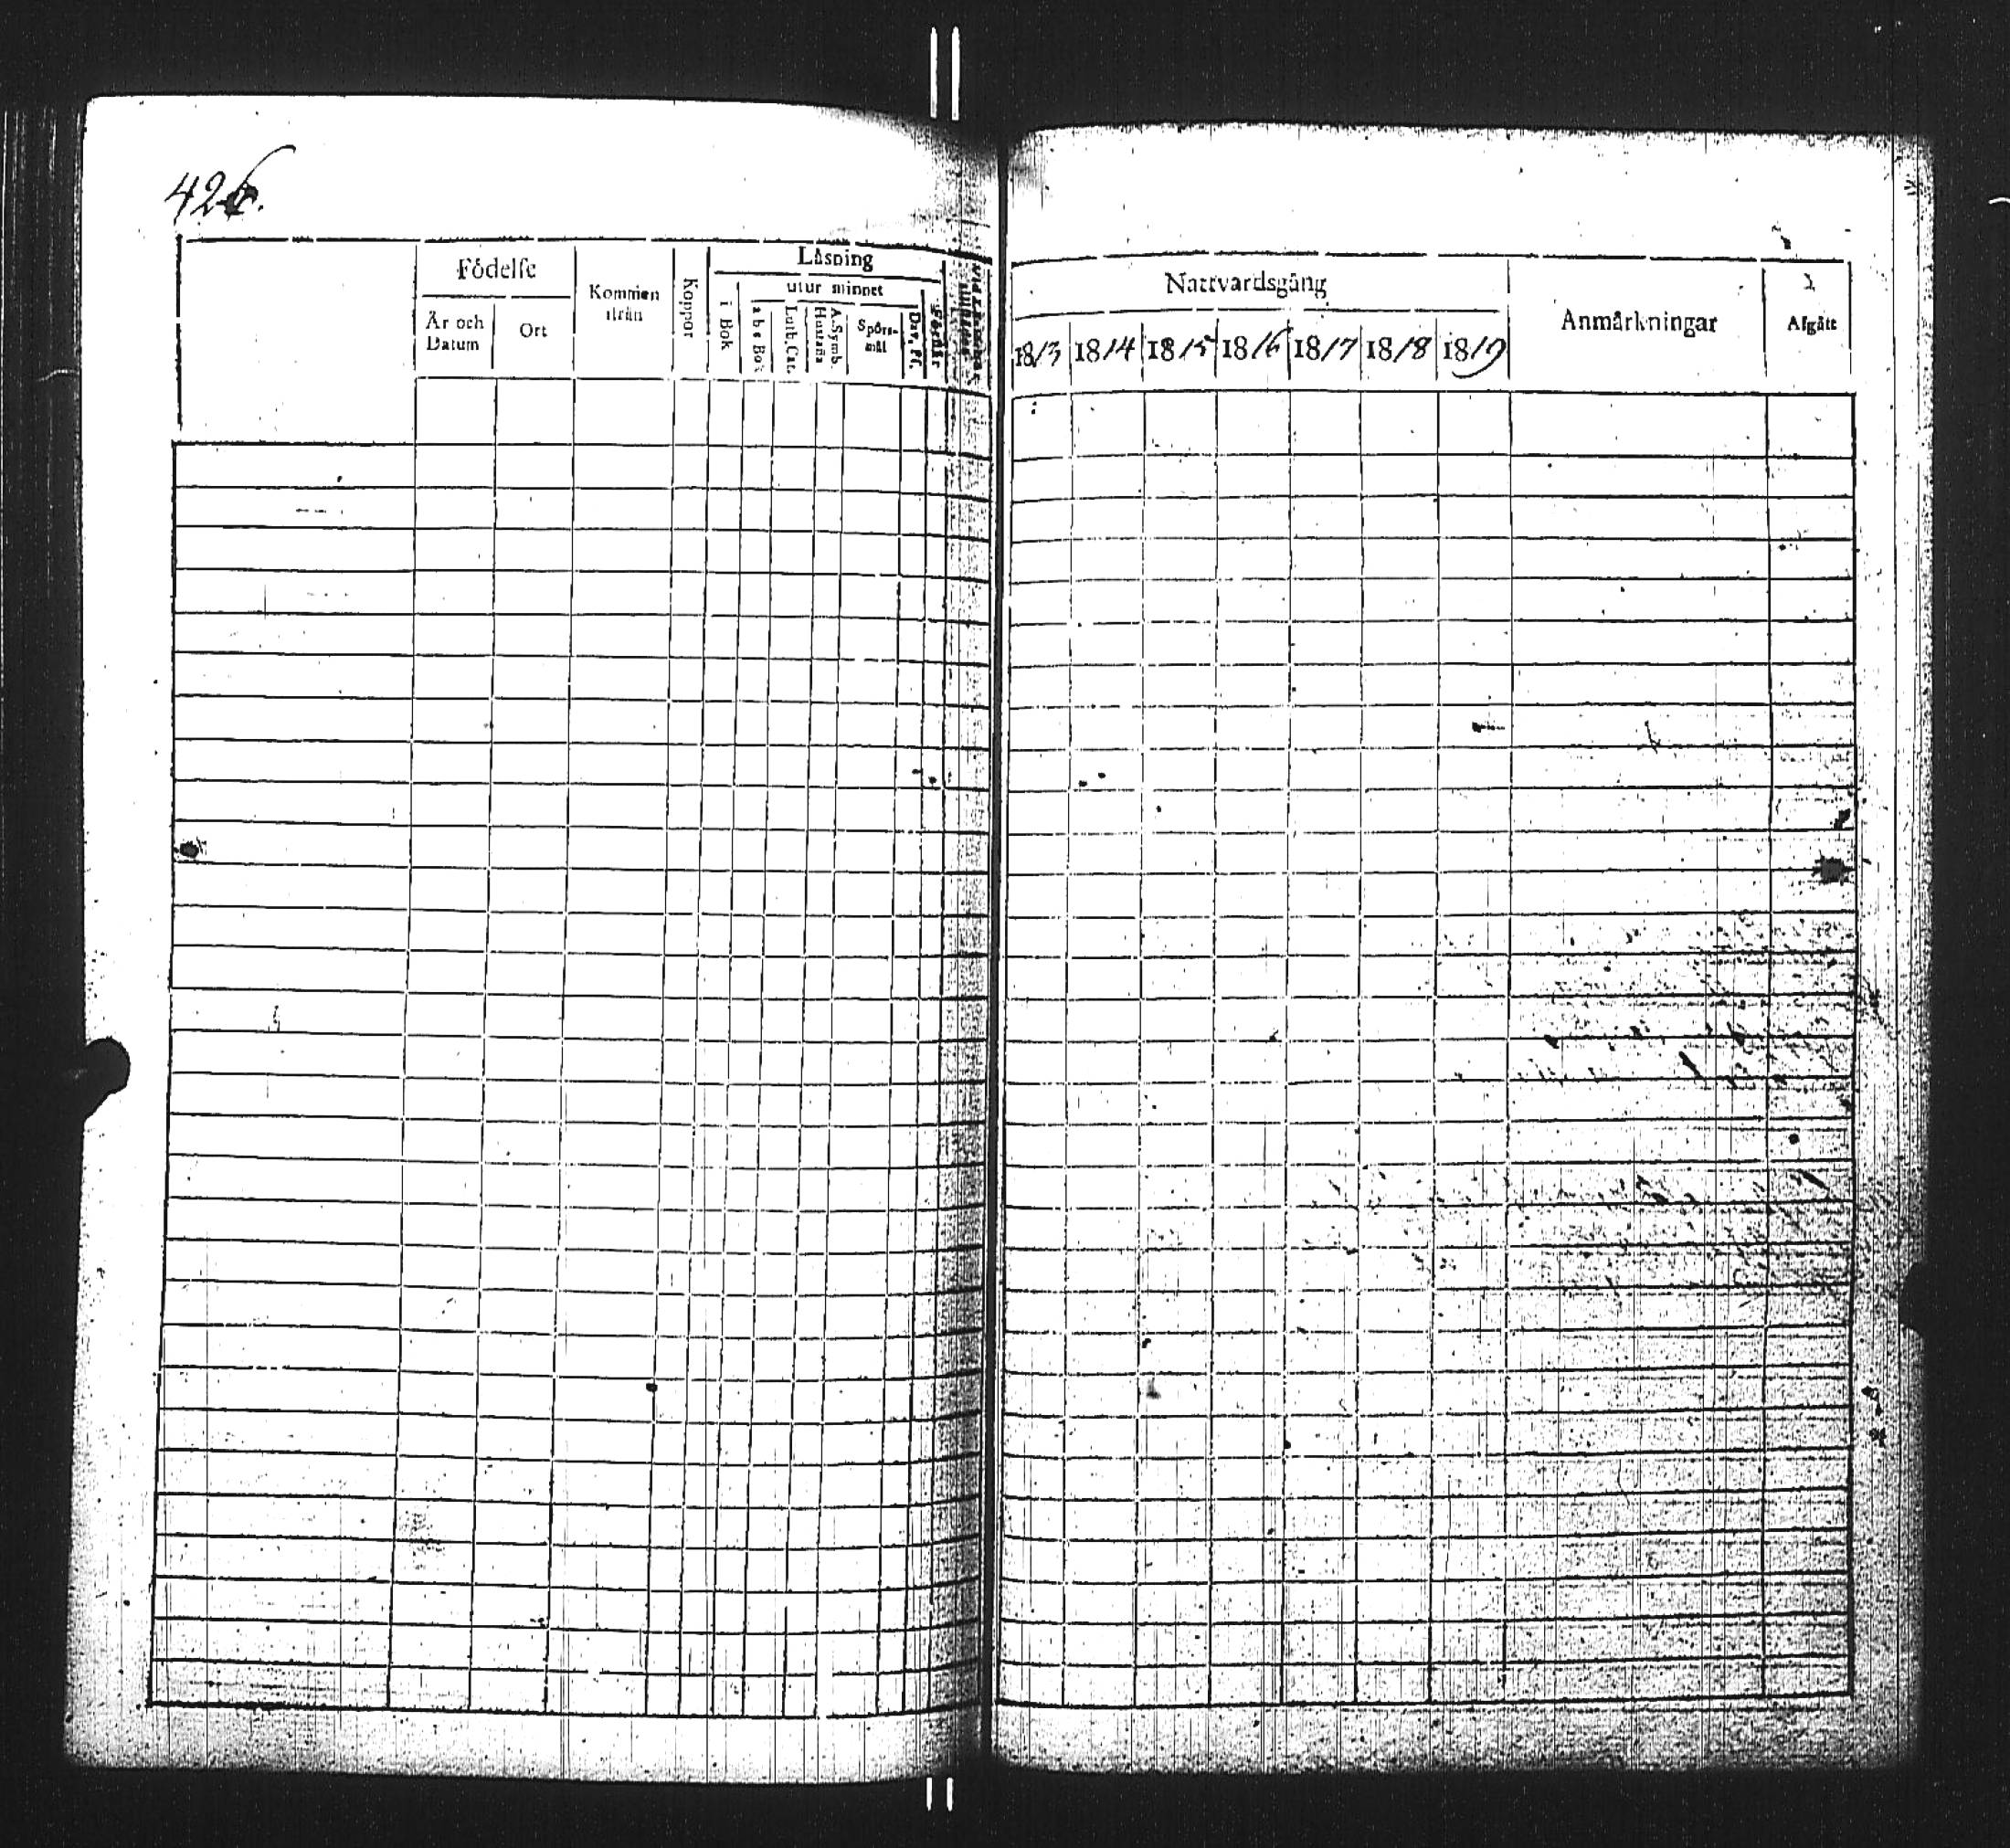 426.
Födelse
År och Datum
Ort
Kommen ifrån
Koppor
Läsning
i Bok
utur minnet
a b c Bok
Luth. Cat.
A. Symb. Hustafla
Spörs-mål
Dav. Ps.
Förstår
Nattvardsgång
1813 1814 1815 1816 1817 1818 1819
Anmärkningar
Afgått